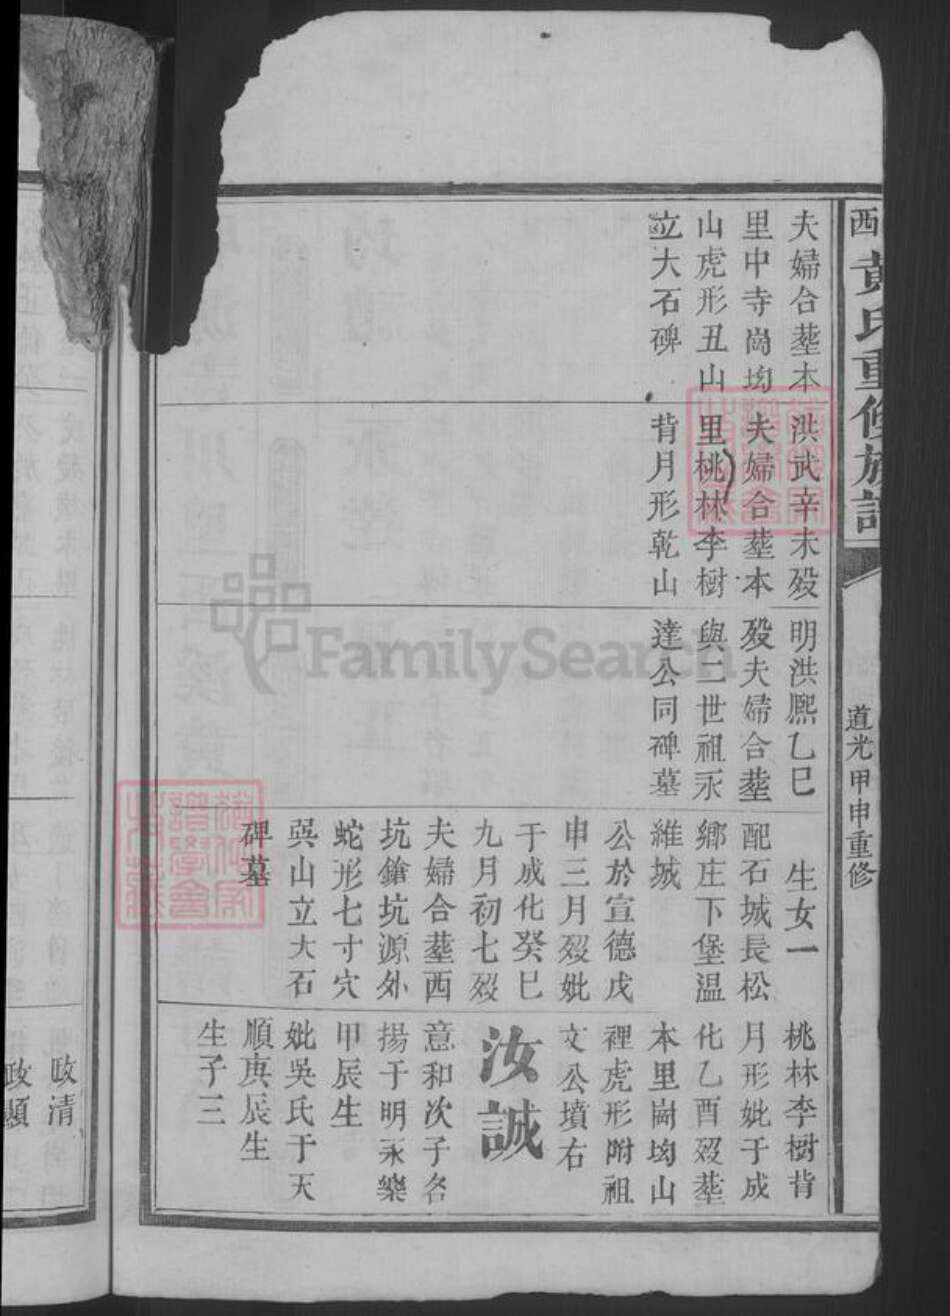 黃氏重修族譜
道光甲申重修
夫婦合塟本
里中寺崗坳
山虎形丑山
立大石碑
洪武辛未歿
夫婦合塟本
里桃林李樹
背月形乾山
明洪熈乙巳
歿夫婦合塟
與二世祖永
達公同碑墓
生女一
配石城長松
鄉庄下堡温
維城
公於宣德戊
申三月歿妣
于成化癸巳
九月初七歿
夫婦合塟西
坑鎗坑源外
蛇形七寸穴
巽山立大石
碑墓
桃林李樹背
月形妣于成
化乙酉歿塟
本里崗坳山
裡虎形附祖
文公墳右
汝誠
意和次子名
揚于明永樂
甲辰生
妣吳氏于天
順庚辰生
生子三
政清
政顯
FamilySearch